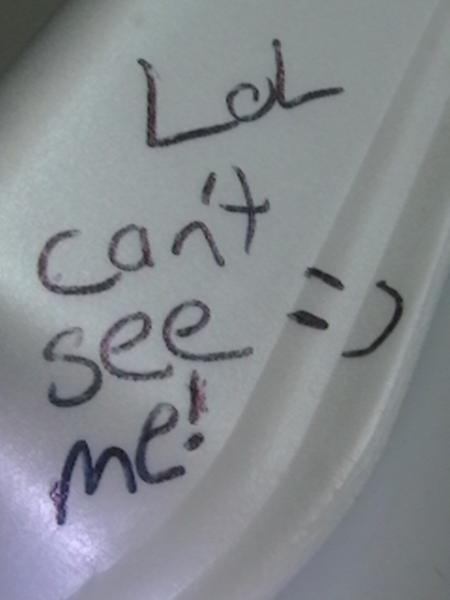 LoL
can't
see =)
me!